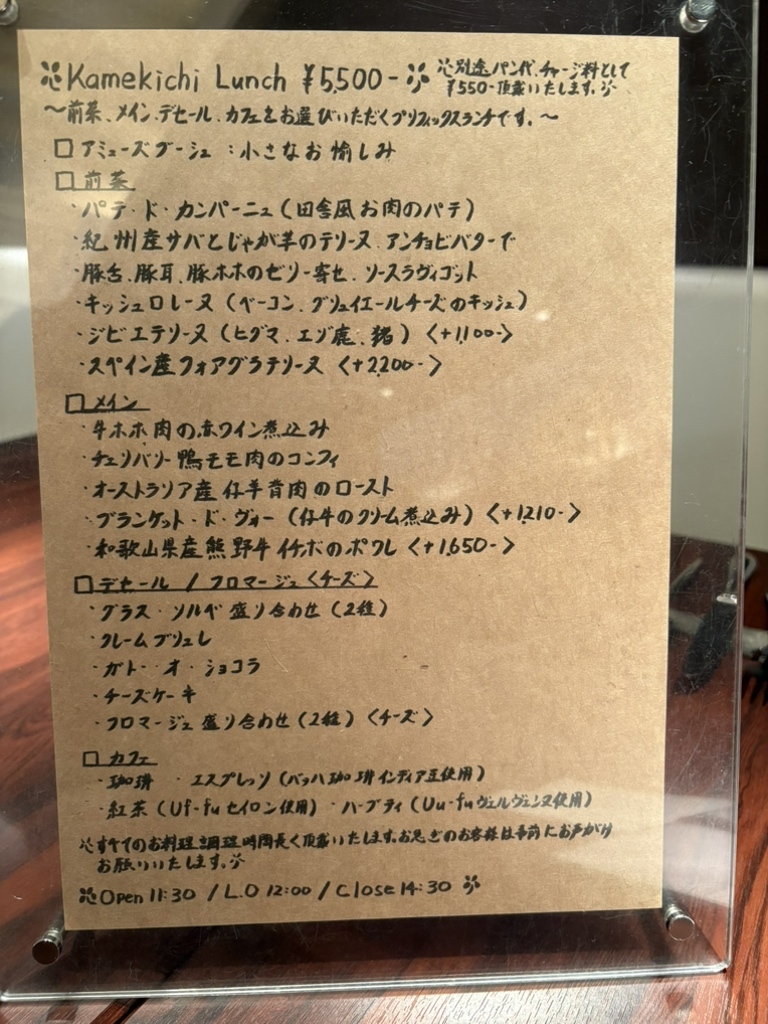 Kamekichi Lunch ¥5,500- 別途パン代、チャージ料として
¥550-頂戴いたします。
〜前菜、メイン、デセール、カフェをお選びいただくプリフィックスランチです。〜
□ アミューズブーシュ：小さなお愉しみ
□ 前菜
・パテ・ド・カンパーニュ（田舎風お肉のパテ）
・紀州産サバとじゃが芋のテリーヌ、アンチョビバターで
・豚舌、豚耳、豚ホホのゼリー寄せ、ソースラヴィゴット
・キッシュロレーヌ（ベーコン、グリュイエールチーズのキッシュ）
・ジビエテリーヌ（ヒグマ、エゾ鹿、猪）〈+1,100-〉
・スペイン産フォアグラテリーヌ〈+2,200-〉
□ メイン
・牛ホホ肉の赤ワイン煮込み
・チェリバリー鴨モモ肉のコンフィ
・オーストラリア産仔羊背肉のロースト
・ブランケット・ド・ヴォー（仔牛のクリーム煮込み）〈+1,210-〉
・和歌山県産熊野牛イチボのポワレ〈+1,650-〉
□ デセール / フロマージュ〈チーズ〉
・グラス・ソルベ盛り合わせ（2種）
・クレームブリュレ
・ガトー・オ・ショコラ
・チーズケーキ
・フロマージュ盛り合わせ（2種）〈チーズ〉
□ カフェ
・珈琲 ・エスプレッソ（バッハ珈琲インディア豆使用）
・紅茶（Uf-fuセイロン使用）・ハーブティ（Uu-fuヴェルヴェンヌ使用）
すべてのお料理調理時間長く頂戴いたします。お急ぎのお客様は事前にお声がけ
お願いいたします。
Open 11:30 / L.O 12:00 / Close 14:30